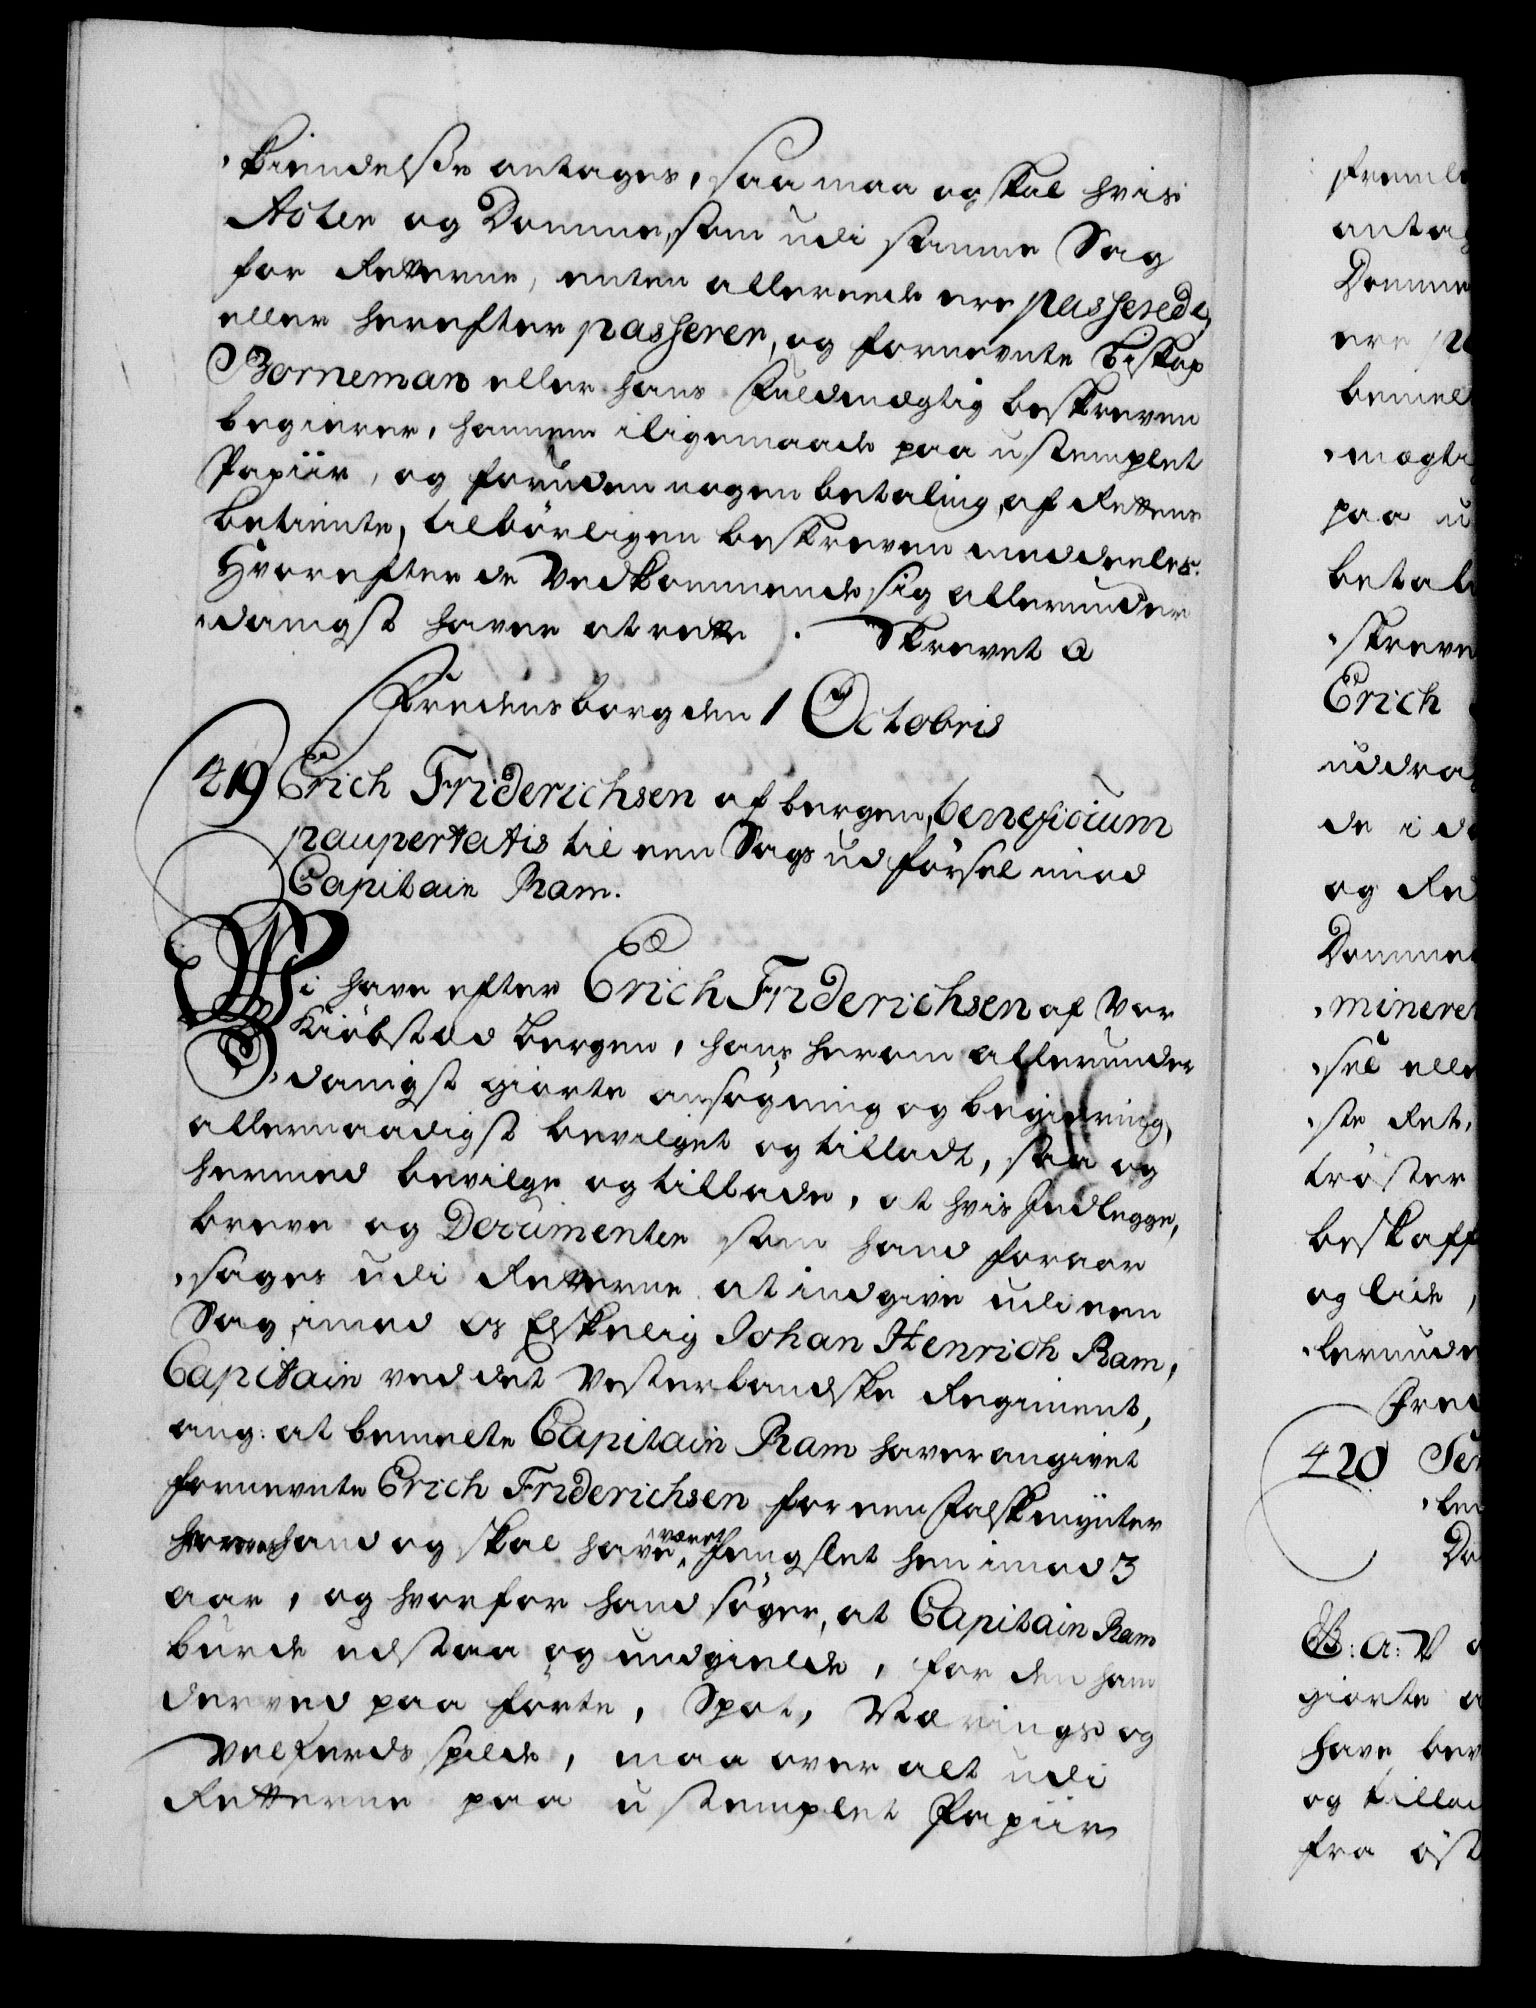 "kiendelsse antages, saa maa og skal hvis
Acter og Domme, som udi samme Sag
for Retterne, enten allereede ere passerede,
eller herefter passerer, og fornevnte Biskop
Borneman eller hans Fuldmægtig beskreven
begierer, hannem iligemaade paa ustemplet
Papiir, og foruden nogen betaling, af Rettens
betiente, tilbörligen beskreven meddeeles.
Hvorefter de Vedkommende sig allerunder
"danigst haver at rette. Skrevet a
Fredensborg den 1 Octobris
419 Erich Friderichsen af bergen, beneficium
paupertatis til een Sags udförsel imod
Capitain Ram.
Wi have efter Erich Friderichsen af Vor
Kiöbstad Bergen, hans herom allerunder
"danigst giorte ansögning og begiering,
allernaadigst bevilget og tilladt, saa og
hermed bevilge og tillade, at hvis Indlegge,
breve og Documenter som hand foraar
"sages udi Retterne at indgive udi een
Sag imod Os Elskelig Johan Henrich Ram,
Capitain ved det Vesterlandske Regiment,
ang: at bemelte Capitain Ram haver angivet
fornevnte Erich Friderichsen for een Falskmynter
hvorved hand og skal have været Fengslet hen imod 3
aar, og hvorfor hand söger, at Capitain Ram
burde udstaa og undgielde, for den ham
derved paa förte, Spot, Nærings og
Velferds spilde, maa over alt udi
Retterne paa ustemplet Papiir
fremle
antag
Domme
ere pa
bemel
"mægti
paa u
betal
"skreve
Erich
uddra
de i de
og Ret
Domme
"minere
"sel elle
"ste Ret,
tröster
beskaff
og lide,
"lerunde
Fred
420
G: A: V
giorte a
have bev
og tillad
fra öst